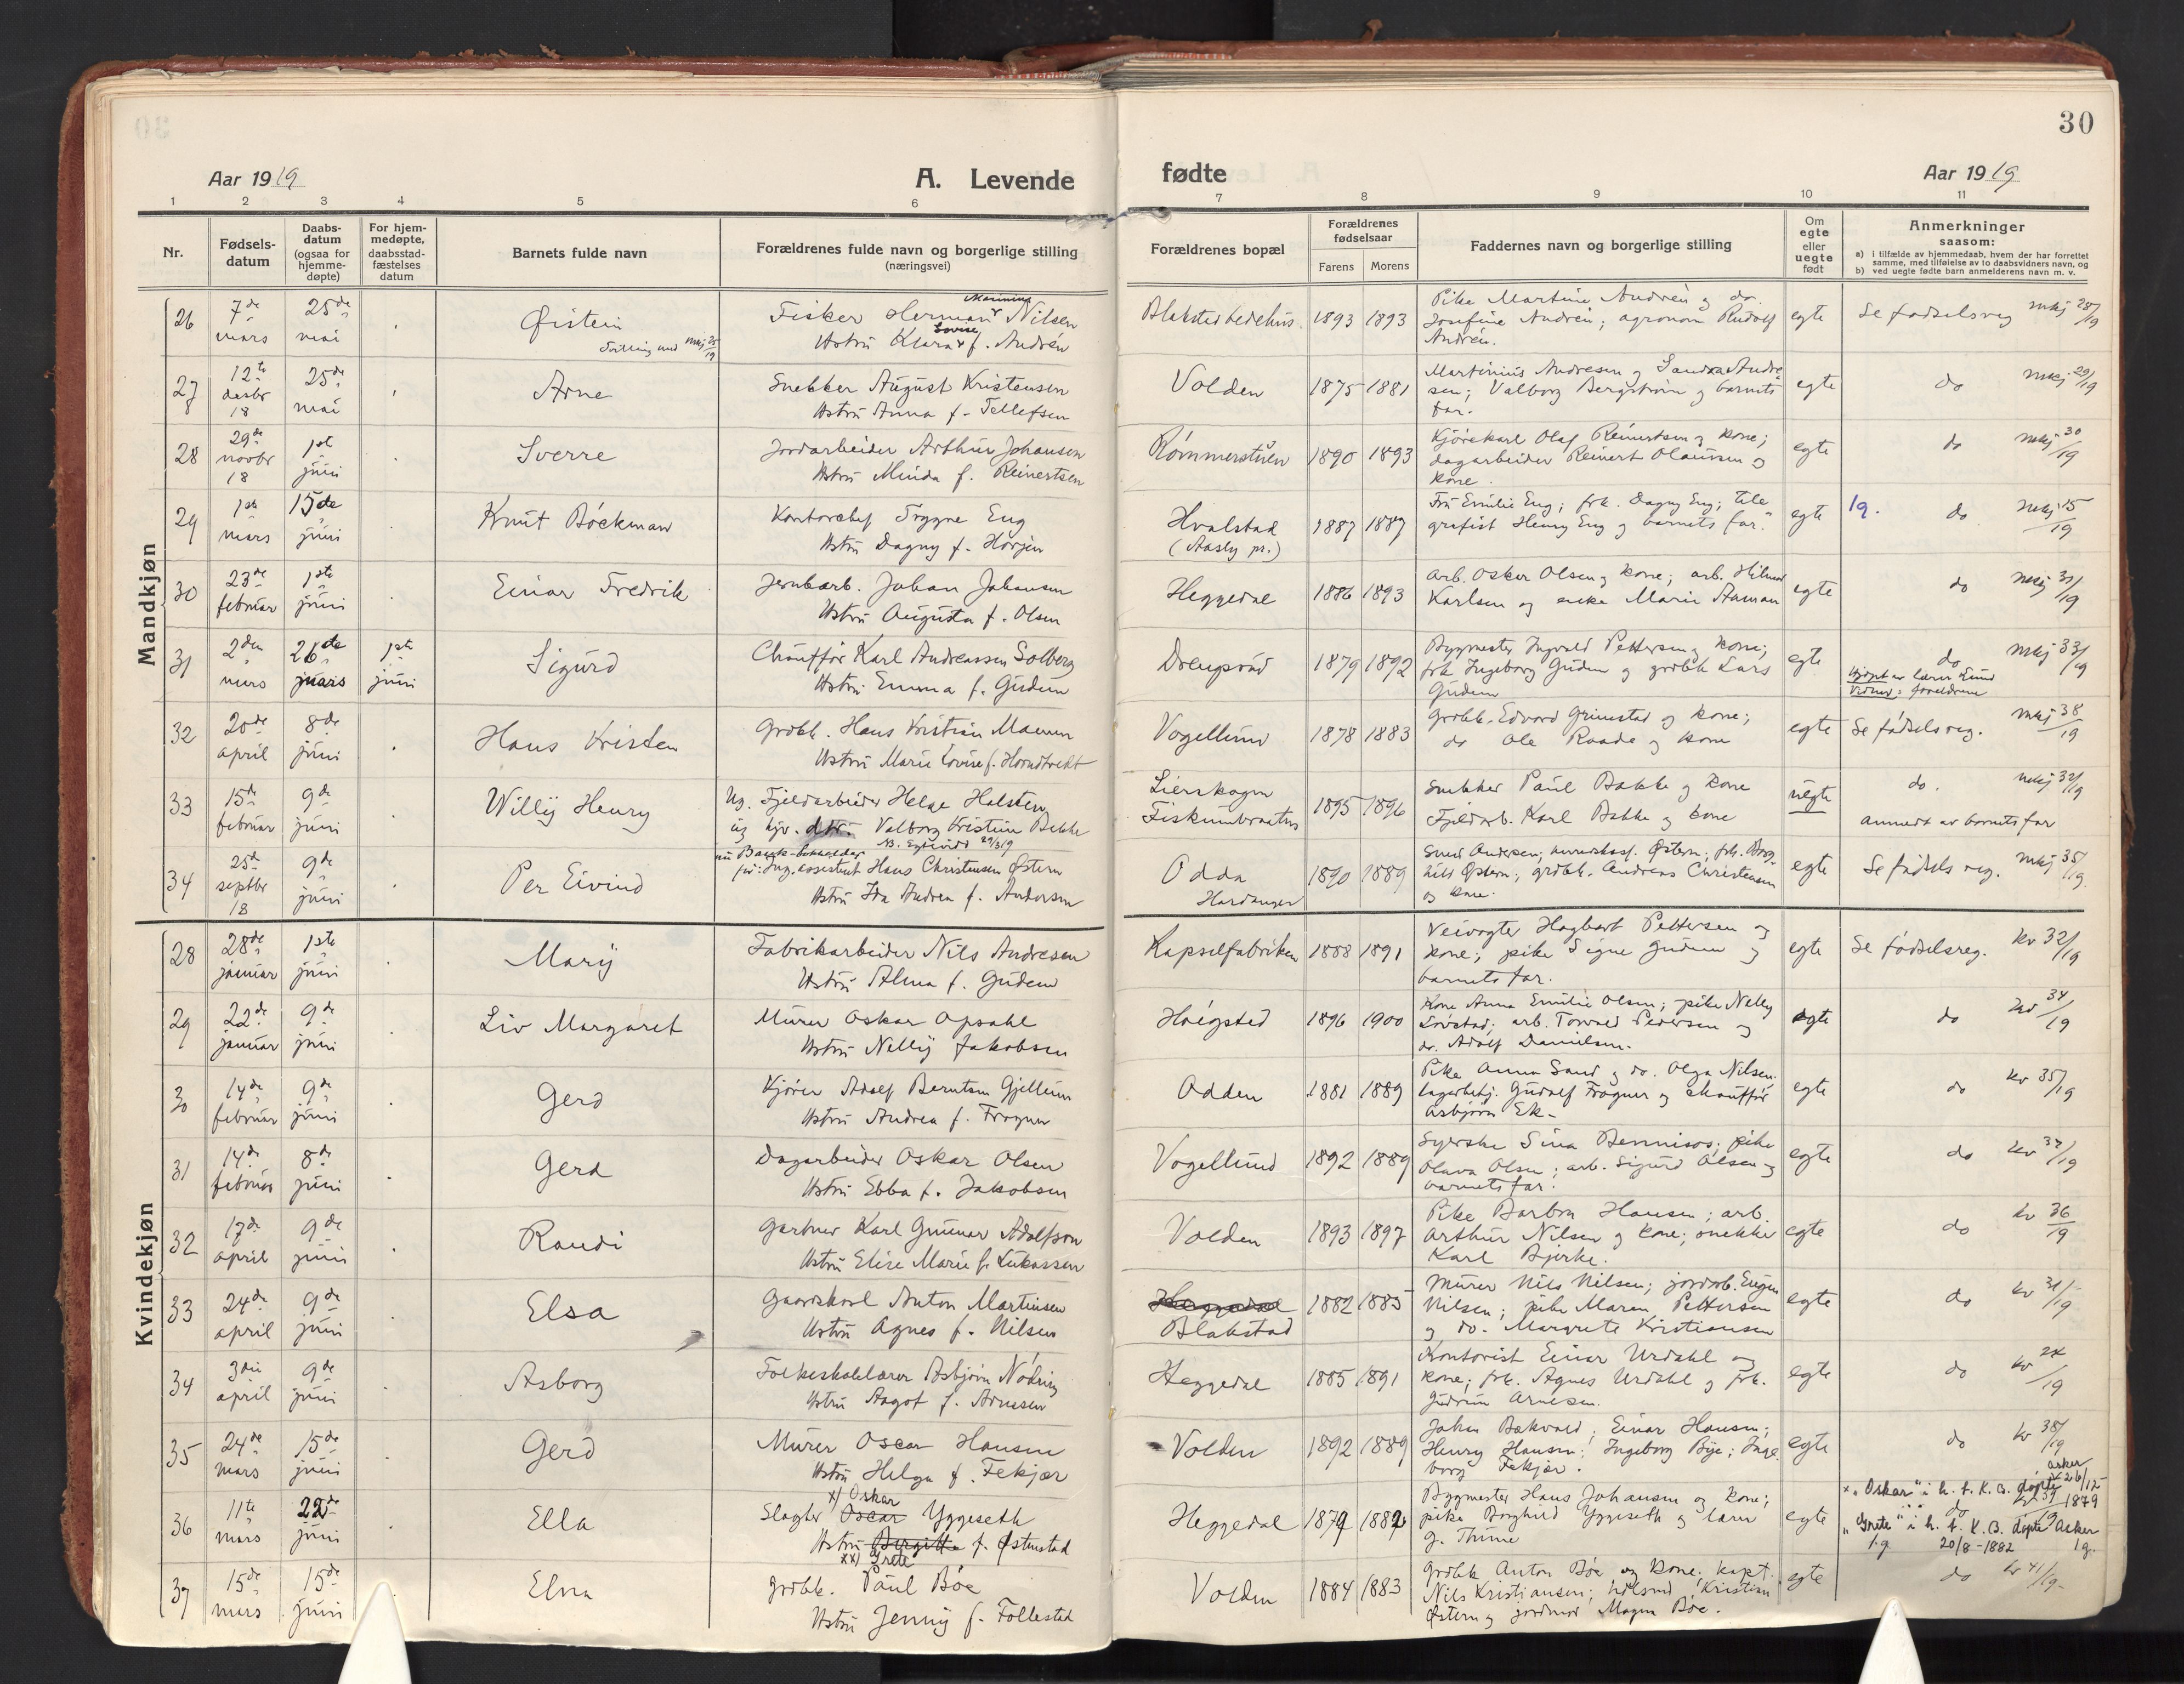 30
Aar 1919
A. Levende
fødte
Aar 1919
1 2 3 4 5 6 7 8 9 10 11
Nr.
Fødsels-
datum
Daabs-
datum
(ogsaa for
hjemme-
døpte)
For hjem-
medøpte,
daabsstad-
fæstelses
datum
Barnets fulde navn
Forældrenes fulde navn og borgerlige stilling
(næringsvei)
Forældrenes bopæl
Forældrenes
fødselsaar
Farens Morens
Faddernes navn og borgerlige stilling
Om
egte
eller
uegte
født
Anmerkninger
saasom:
a) i tilfælde av hjemmedaab, hvem der har forrettet
samme, med tilføielse av to daabsvidners navn, og
b) ved uegte fødte barn anmelderens navn m. v.
Mandkjøn
26 7de mars 25de mai Øistein
Tvilling med mkj 25/19
Fisker Herman Marinius Nilsen
Hstru Klara Lovise f. Andrén
1893 1893
Pike Martine Andrén og do.
Josefine Andrén; agronom Rudolf
Andrén.
egte Se fødselsreg mkj 28/19
27 12te desbr 18 25de mai Arne
Snekker August Kristensen
Hstru Anna f. Tellefsen
Volden 1875 1881
Martinius Andresen og Sandra Andre-
sen; Valborg Bergstrøm og barnets
far.
egte do mkj 29/19
28 29de novbr 18 1ste juni Sverre
Jordarbeider Arthur Johansen
Hstru Minda f. Reinertsen
Rømmerstuen 1890 1893
Kjørekarl Olaf Reinertsen og kone;
dagarbeider Reinert Olaussen og
kone.
egte do mkj 30/19
29 1ste mars 15de juni Knut Böckman
Kontorchef Trygve Eng
Hstru Dagny f. Horjen
Hvalstad
(Aasly pr.)
1887 1887
Fru Emilie Eng; frk. Dagny Eng; tele-
grafist Henry Eng og barnets far.
egte 19. do mkj 15/19
30 23de februar 1ste juni Einar Fredrik
Jernbarb. Johan Johansen
Hstru Augusta f. Olsen
Heggedal 1886 1893
Arb. Oskar Olsen og kone; arb. Hilmar
Karlsen og enke Marie Aaman
egte do mkj 31/19
31 2den mars 26de mars 1ste juni Sigurd
Chauffør Karl Andreassen Solberg
Hstru Emma f. Gudem
Drengsrud 1879 1892
Bygmester Ingvald Pettersen og kone;
frk Ingeborg Gudem og grdbk Lars
Gudem
egte do mkj 33/19
Hjdpt av lærer Lund
Vidner: forældrene
32 20de april 8de juni Hans Kristen
Grdbk. Hans Kristian Maenn
Hstru Marie Lovise f.
Vogellund 1878 1883
Grdbk. Edvard Grimstad og kone;
do Ole Raade og kone
egte Se fødselsreg. mkj 38/19
33 15de februar 9de juni Willy Henry
Ug. Fjeldarbeider Helge Halsten
ug tjv. dtr. Valborg Kristine Bakke
Lierskogen
1895 1896
Snekker Paul Bakke og kone
Fjeldarb. Karl Bakke og kone
uegte do. mkj 32/19
anmeldt av barnets far
34 25de septbr 18 9de juni Per Eivind
nu Bank-bokholder
før: Ing. assistent Hans Christensen Østern
Hstru Ida Andrea f. Andersen
Odda
Hardanger
1890 1889
hild Østern; grdbk. Andreas Christensen
og kone.
egte Se fødsels reg. mkj 35/19
Kvindekjøn
28 28de januar 1ste juni Mary
Fabrikarbeider Nils Andresen
Hstru Alma f. Gudem
Kapselfabriken 1888 1891
Veivogter Hagbart Pettersen og
kone; pike Signe Gudem og
barnets far.
egte Se fødselsreg. kv 32/19
29 22de januar 9de juni Liv Margaret
Murer Oskar Opsahl
Hstru Nelly Jakobsen
Høigsted 1896 1900
Kone Anna Emilie Olsen; pike Nelly
Løvstad; arb. Torvald Pedersen og
do. Adolf Danielsen.
egte do kv 34/19
30 14de februar 9de juni Gerd
Kjører Adolf Berntsen Gjellum
Hstru Andrea f. Frogner
Odden 1881 1889
Pike Anna Sand og do. Olga Nilsen.
Lagerbetj. Gudolf Frogner og chauffør
Asbjørn Ek.
egte do kv 35/19
31 14de februar 8de juni Gerd
Dagarbeider Oskar Olsen
Hstru Ebba f. Jakobsen
Vogellund 1892 1889
Syerske Sina Bennisos; pike
Olava Olsen; arb. Sigurd Olsen og
barnets far.
egte do kv 37/19
32 17de april 9de juni Randi
Gartner Karl Gunnar Adolfson
Hstru Elise Marie f. Lukassen
Volden 1893 1897
Pike Barbra Hansen; arb.
Arthur Nilsen og kone; snekker
Karl Bjerke.
egte do kv 36/19
33 24de april 9de juni Elsa
Gaardskarl Anton Martinsen
Hstru Agnes f. Nilsen
Heggedal
Blakstad
1882 1885
Murer Nils Nilsen; jordarb. Eugen
Nilsen; pike Maren Pettersen
og do. Margrete Kristiansen
egte do kv 31/19
34 3die april 9de juni Asborg
Folkeskolelærer Asbjørn Nødring
Hstru Aagot f. Arnesen
Heggedal 1885 1891
Kontorist Einar Urdahl og
kone; frk. Agnes Urdahl og frk.
Gudrun Arnesen.
egte do kv 24/19
35 24de mars 15de juni Gerd
Murer Oscar Hansen
Hstru Helga f. Fekjær
Volden 1892 1889
Johan Bakvald; Einar Hansen;
Henry Hansen; Ingeborg Bye; Inge-
borg Fekjær.
egte do kv 38/19
36 11te mars 22de juni Ella
x) Oskar
Slagter Oscar Yggeseth
Hstru Birgitte f. Østensted
xx) Grete
Heggedal 1879 1882
Bygmester Hans Johansen og kone;
pike Borghild Yggeseth og lærer
G. Thune
egte do kv 39/19
x "Oskar" i h. t. K. B. døpte Asker 26/12 1879
"Grete" i h. t. K. B. døpte Asker
20/8-1882
37 15de mars 15de juni Elna
Grdbk. Paul Bøe
Hstru Jenny f. Follestad
Volden 1884 1883
Grdbk Anton Bøe og kone; kapt.
Nils Kristiansen; Kristian
Østern og jordmor Magna Bøe.
egte do kv 41/19